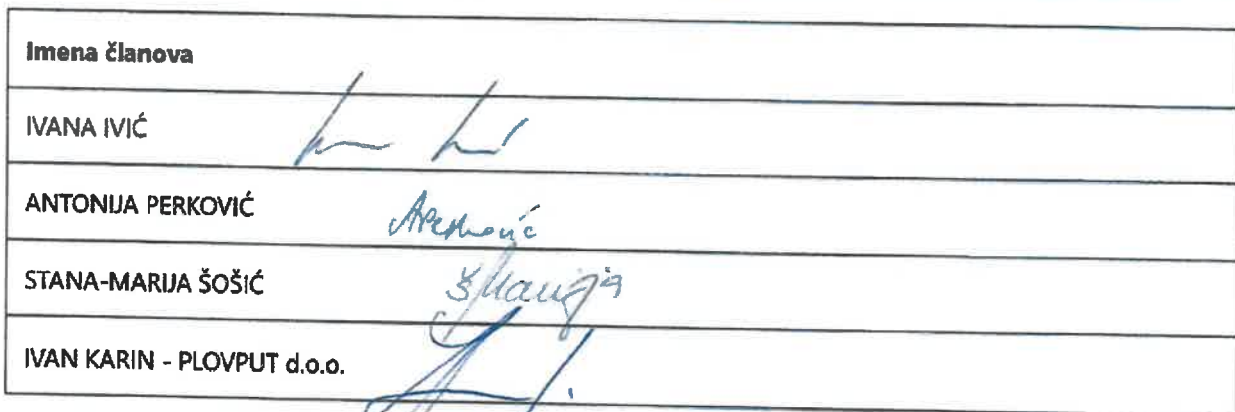 Imena članova
IVANA IVIĆ
ANTONIJA PERKOVIĆ APerković
STANA-MARIJA ŠOŠIĆ
IVAN KARIN - PLOVPUT d.o.o.